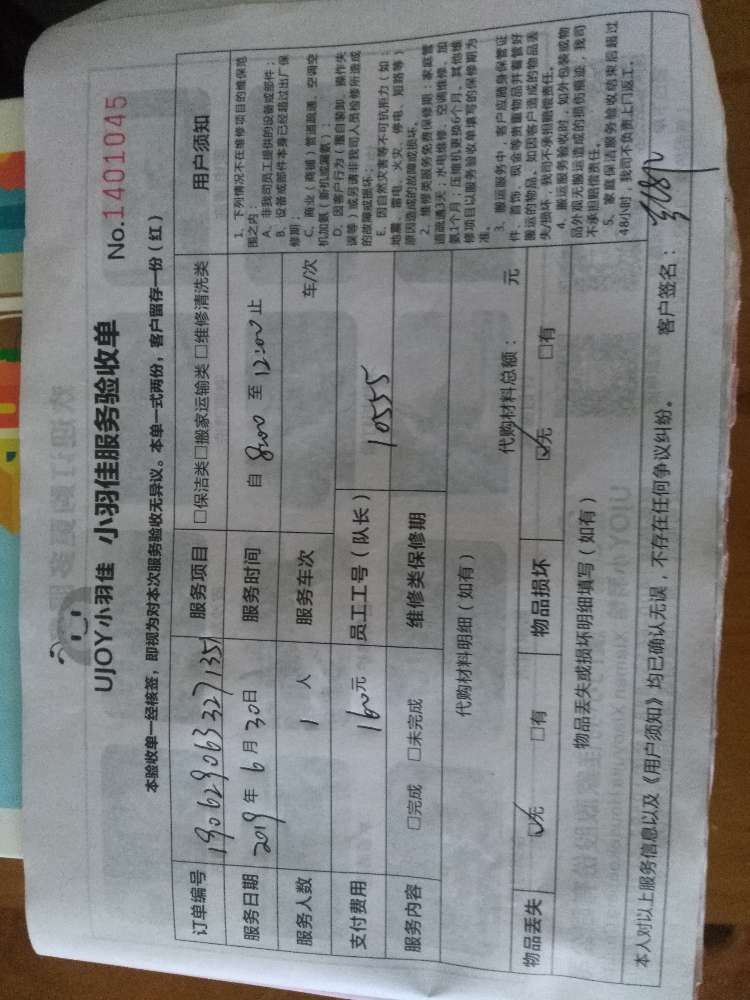 UJOY小羽佳 小羽佳服务验收单
No.1401045
本验收单一经核签，即视为对本次服务验收无异议。本单一式两份，客户留存一份（红）
订单编号 服务项目 □保洁类□搬家运输类 □维修清洗类
服务日期 2019 年 6 月 30 日 服务时间 自 8:00 至 12:00 止
服务人数 1 人 服务车次 车/次
支付费用 160元 员工工号（队长） 10555
服务内容 □完成 □未完成 维修类保修期
代购材料明细（如有） 代购材料总额： 元
物品丢失 ☑无 □有 物品损坏 ☑无 □有
物品丢失或损坏明细填写（如有）
用户须知
1、下列情况不在维修项目的维保范
围之内：
A、非我司员工提供的设备或部件；
B、设备或部件本身已经超过出厂保
修期；
C、商业（商铺）管道疏通、空调空
机加氨（新机或漏氨）；
D、因客户行为（擅自装卸、操作失
误等）或另请非我司人员检修所造成
的故障或损坏；
E、因自然灾害等不可抗拒力（如：
地震、雷电、火灾、停电、短路等）
原因造成的故障或损坏。
2、维修类服务免费保修期：家庭管
道疏通3天；水电维修、空调维修、加
氨1个月；压缩机更换6个月、其他维
修项目以服务验收单填写的保修期为
准。
3、搬运服务中，客户应随身保管证
件、首饰、现金等贵重物品并看管好
搬运的物品，如因客户造成的物品丢
失/损坏，我司不承担赔偿责任。
4、搬运服务验收时，如外包装或物
品外观无搬运造成的损伤痕迹，我司
不承担赔偿责任。
5、家庭保洁服务验收结束后超过
48小时，我司不负责上门返工。
本人对以上服务信息以及《用户须知》均已确认无误，不存在任何争议纠纷。 客户签名：